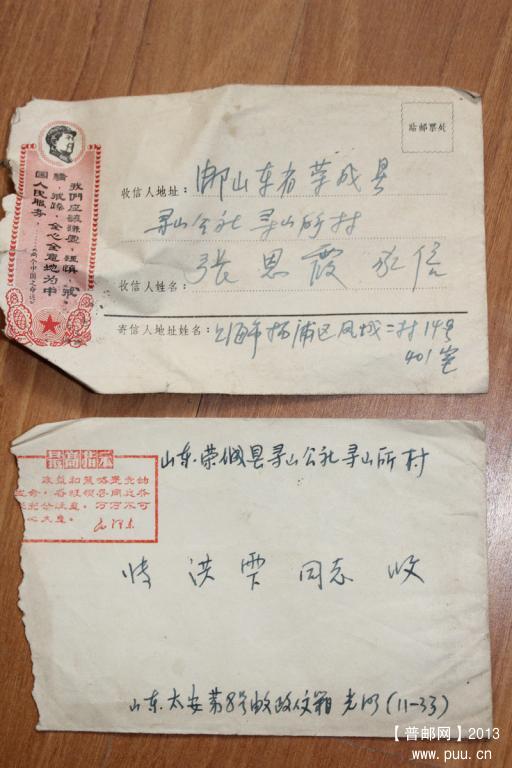 贴邮票处
我們应該謙虛，謹慎，戒
驕，戒躁，全心全意地为中
国人民服务，……
《两个中国之命运》
收信人地址：
邮山东省荣成县
寻山公社寻山所村
收信人姓名：
张恩霞 收信
寄信人地址姓名：上海市杨浦区凤城二村14号
401室
最高指示
政策和策略是党的
生命，各级领导同志务
必充分注意，万万不可
粗心大意。
毛泽东
山东荣成县寻山公社寻山所村
洪霄 同志 收
山东 太安第8号邮政信箱 (11-33)
【普邮网】2013
www.puu.cn